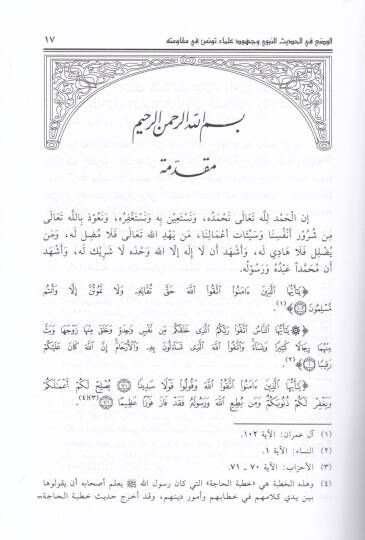 الوضع في الحديث النبوي وجهود علماء تونس في مقاومته ١٧
بسم الله الرحمن الرحيم
مقدّمة
إن الْحَمْد للَّه تَعَالَى نَحْمَدُه، ونَسْتَعِيْن بِه ونَسْتَغْفِرُه، ونَعُوْذ بِاللَّه تَعَالَى
مِن شُرُوْر أَنْفُسِنَا وسَيِّئَات أَعْمَالِنَا، مَن يَهْدِ اللَّه تَعَالَى فَلَا مُضِل لَه، ومَن
يُضْلِل فَلَا هَادِي لَه، وأَشْهَد أَن لَا إِلَه إلَّا اللَّه وَحْدَه لَا شَرِيْك لَه، وأَشْهَد
أَن مُحَمَّداً عَبْدُه وَرَسُوْلُه.
﴿يَٰٓأَيُّهَا ٱلَّذِينَ ءَامَنُوا۟ ٱتَّقُوا۟ ٱللَّهَ حَقَّ تُقَاتِهِۦ وَلَا تَمُوتُنَّ إِلَّا وَأَنتُم
مُّسْلِمُونَ ﴿١٠٢﴾﴾(١).
﴿۞ يَٰٓأَيُّهَا ٱلنَّاسُ ٱتَّقُوا۟ رَبَّكُمُ ٱلَّذِى خَلَقَكُم مِّن نَّفْسٍ وَٰحِدَةٍ وَخَلَقَ مِنْهَا زَوْجَهَا وَبَثَّ
مِنْهُمَا رِجَالًا كَثِيرًا وَنِسَآءً ۚ وَٱتَّقُوا۟ ٱللَّهَ ٱلَّذِى تَسَآءَلُونَ بِهِۦ وَٱلْأَرْحَامَ ۚ إِنَّ ٱللَّهَ كَانَ عَلَيْكُمْ
رَقِيبًا ﴿١﴾﴾(٢).
﴿يَٰٓأَيُّهَا ٱلَّذِينَ ءَامَنُوا۟ ٱتَّقُوا۟ ٱللَّهَ وَقُولُوا۟ قَوْلًا سَدِيدًا ﴿٧٠﴾ يُصْلِحْ لَكُمْ أَعْمَٰلَكُمْ
وَيَغْفِرْ لَكُمْ ذُنُوبَكُمْ ۗ وَمَن يُطِعِ ٱللَّهَ وَرَسُولَهُۥ فَقَدْ فَازَ فَوْزًا عَظِيمًا ﴿٧١﴾﴾(٣)(٤).
(١) آل عمران: الآية ١٠٢.
(٢) النساء: الآية ١.
(٣) الأحزاب: الآية ٧٠ ـ ٧١.
(٤) وهذه الخطبة هي «خطبة الحاجة» التي كان رسول الله ﷺ يعلم أصحابه أن يقولوها
بين يدي كلامهم في خطابهم وأمور دينهم، وقد أخرج حديث خطبة الحاجة=